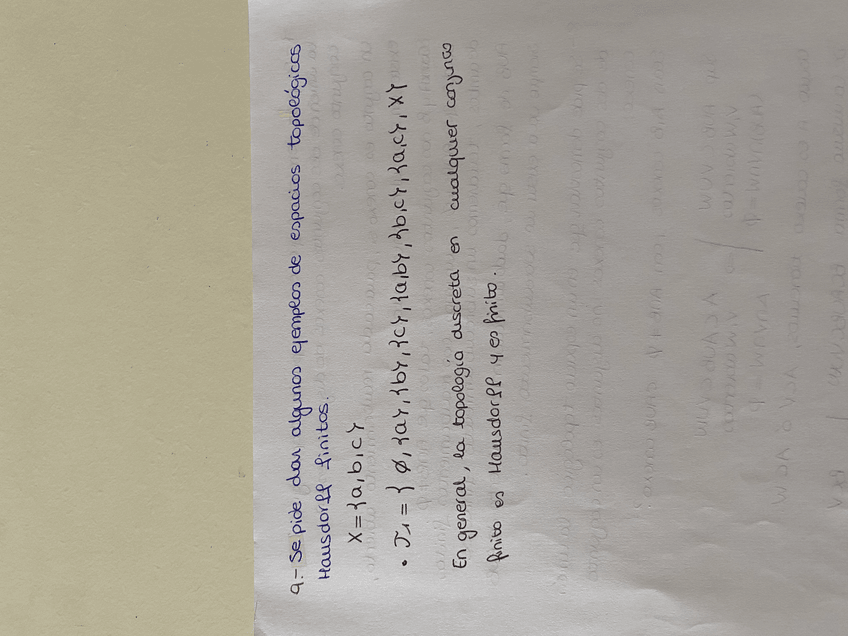 9.- Se pide dar algunos ejemplos de espacios topológicos
Hausdorff finitos.
X = {a,b,c}
• T₁ = { ∅, {a}, {b}, {c}, {a,b}, {b,c}, {a,c}, X}
En general, la topología discreta en cualquier conjunto
finito es Hausdorff y es finito.